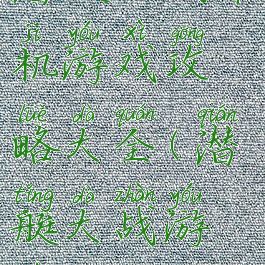 jī yóu xì gōng
机游戏攻
lüè dà quán qián
略大全(潜
tǐng dà zhàn yóu
艇大战游